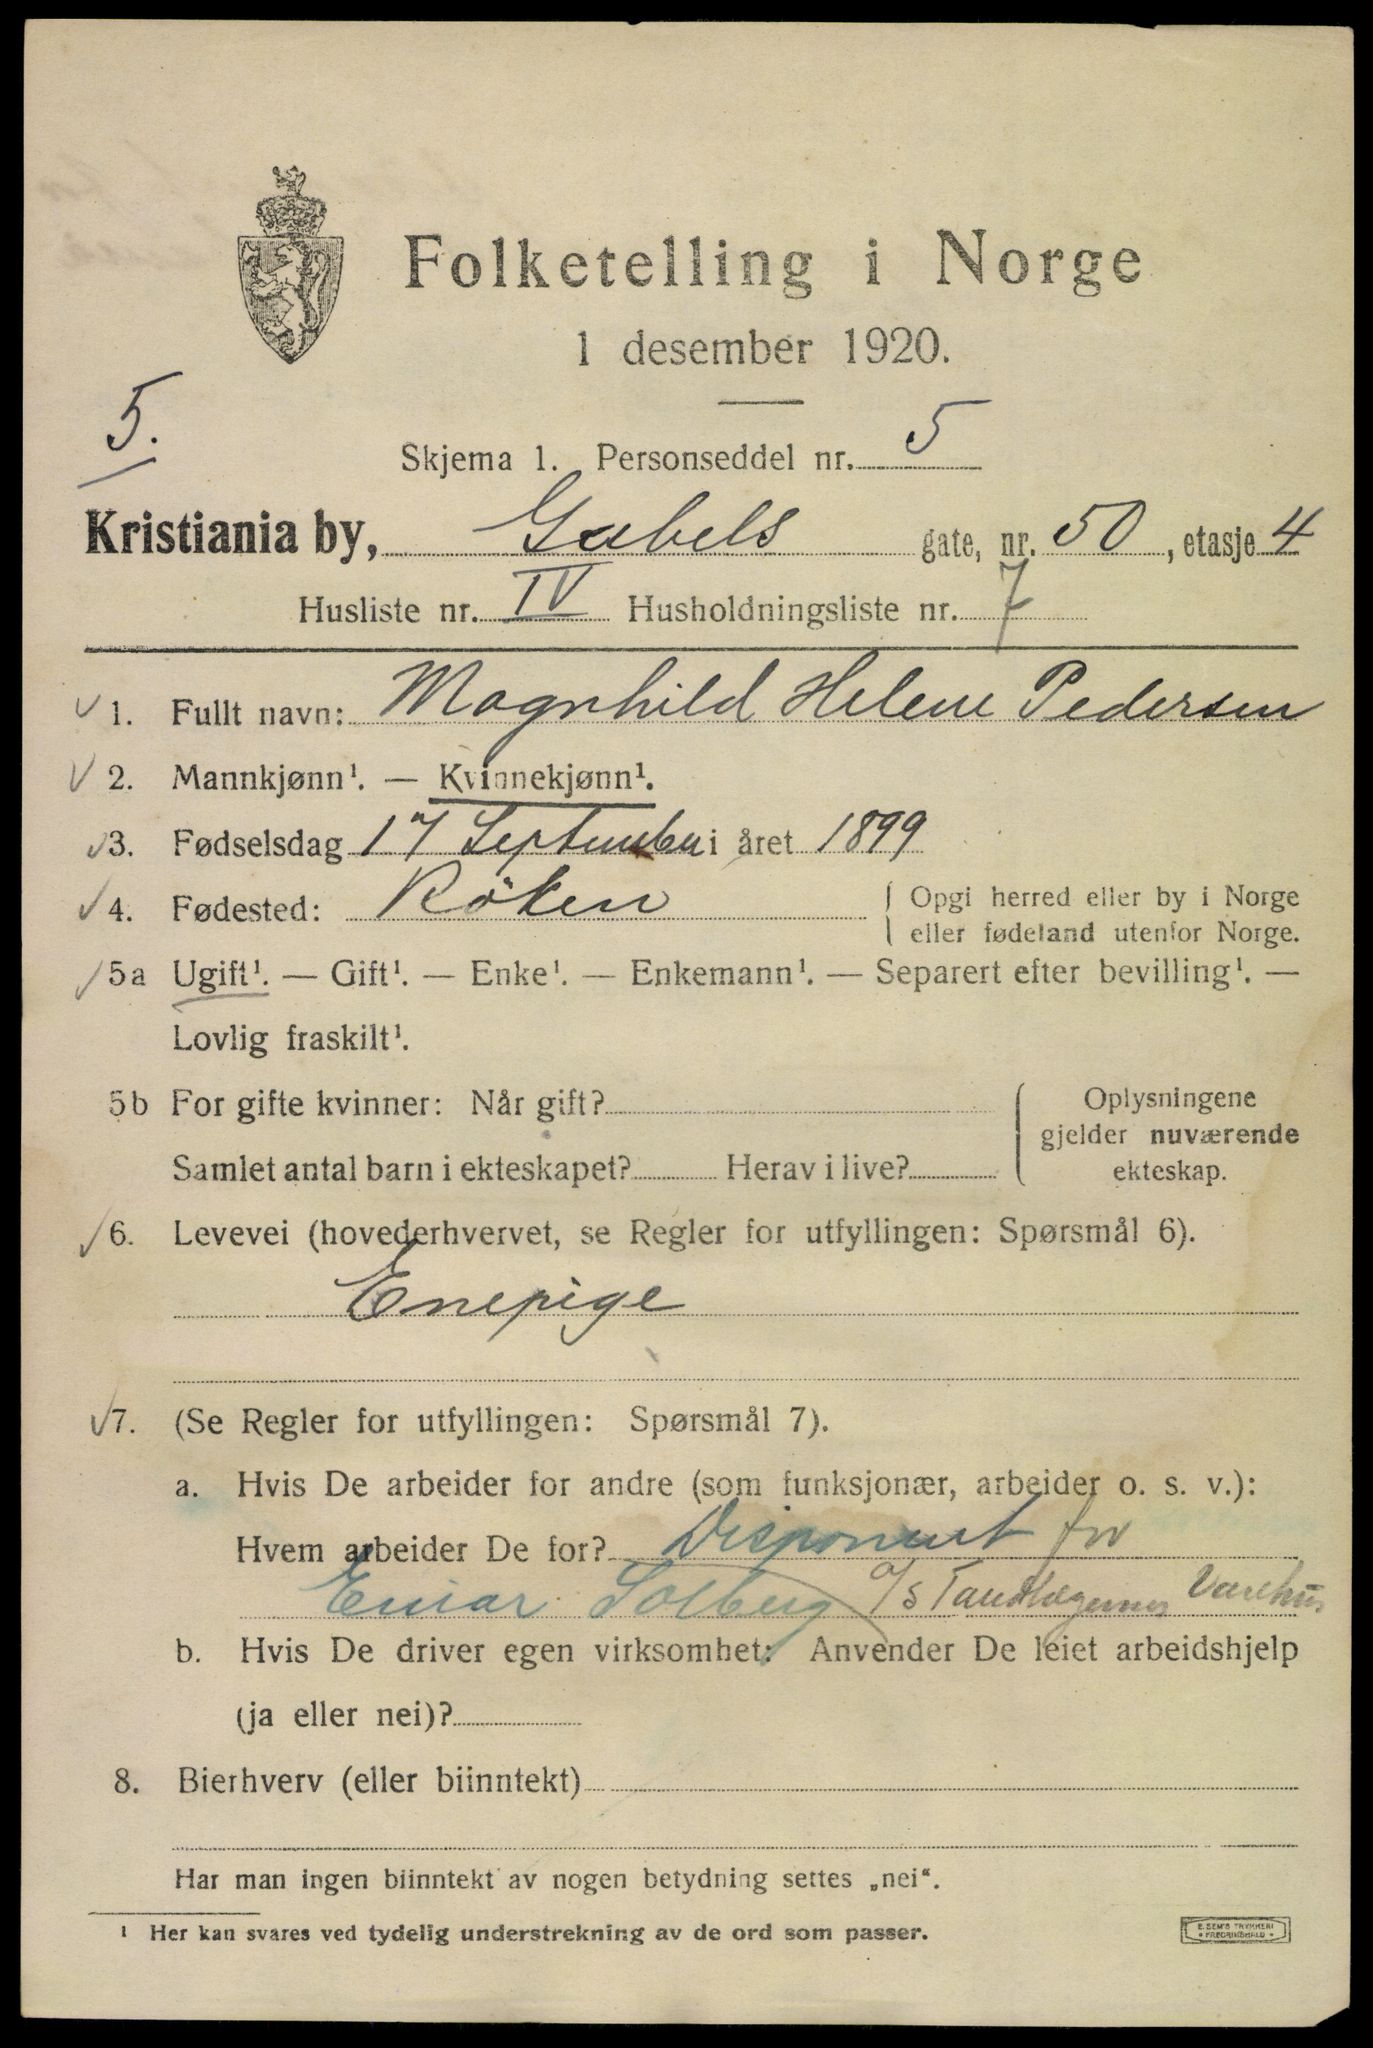 Folketelling i Norge
1 desember 1920.
5.
Skjema 1. Personseddel nr. 5
Kristiania by, Gabels gate, nr. 50, etasje 4
Husliste nr. IV Husholdningsliste nr. 7
1. Fullt navn: Magnhild Helene Pedersen
2. Mannkjønn¹. — Kvinnekjønn¹.
3. Fødselsdag 17 September i året 1899
4. Fødested: Röken { Opgi herred eller by i Norge
eller fødeland utenfor Norge.
5a Ugift¹. — Gift¹. — Enke¹. — Enkemann¹. — Separert efter bevilling¹. —
Lovlig fraskilt¹.
5b For gifte kvinner: Når gift? { Oplysningene
gjelder nuværende
Samlet antal barn i ekteskapet? Herav i live? ekteskap.
6. Levevei (hovederhvervet, se Regler for utfyllingen: Spørsmål 6).
Enepige
7. (Se Regler for utfyllingen: Spørsmål 7).
a. Hvis De arbeider for andre (som funksjonær, arbeider o. s. v.):
Hvem arbeider De for? Disponent for
Einar Solberg a/s Tandlægernes Varehus
b. Hvis De driver egen virksomhet: Anvender De leiet arbeidshjelp
(ja eller nei)?
8. Bierhverv (eller biinntekt)
Har man ingen biinntekt av nogen betydning settes „nei“.
¹ Her kan svares ved tydelig understrekning av de ord som passer.
E. SEM'S TRYKKERI
• FREDRIKSHALD •